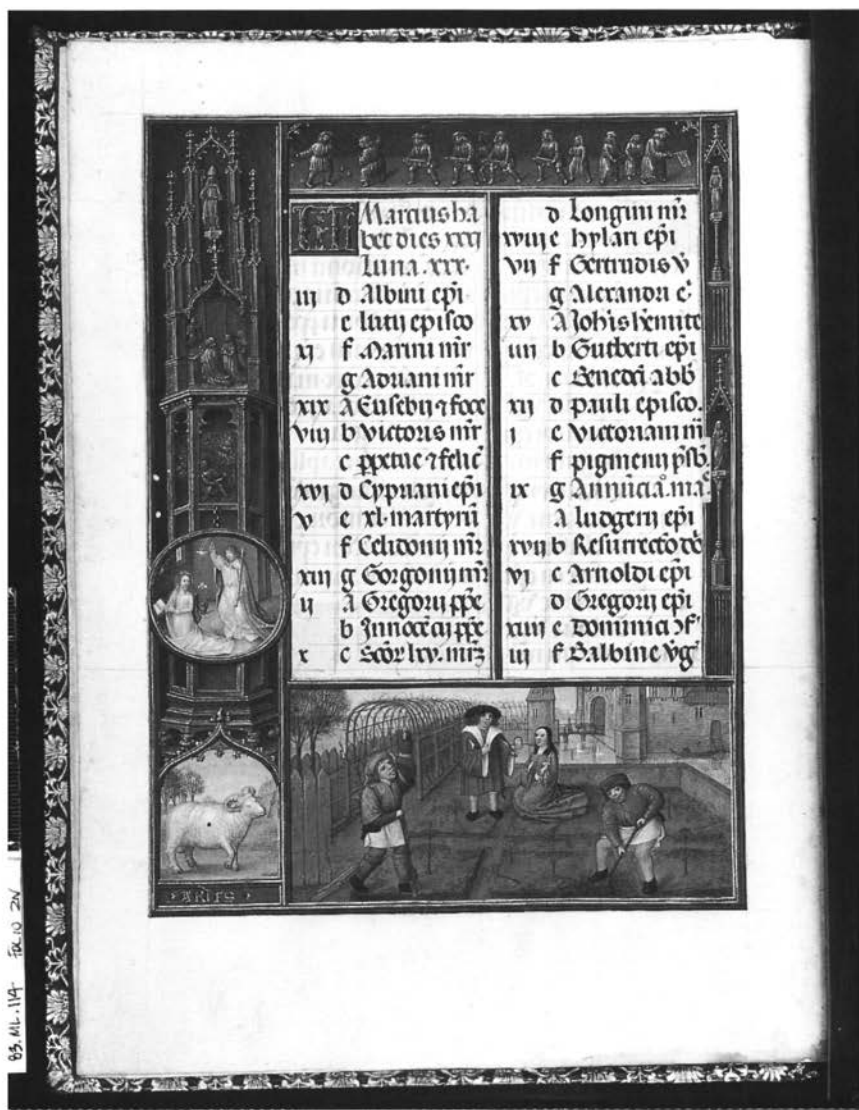 KL Marcius ha
bet dies xxxj
Luna .xxx.
iij d Albini ep̄i
e lucij episco
xj f Marini mr̄
g Adriani mr̄
xix a Eusebij ⁊ foce
viij b Victoris mr̄
c ꝑpetue ⁊ felic̄
xvj d Cypriani ep̄i
v e xl. martyrū
f Celidonij mr̄
xiij g Gorgonij mr̄
ij a Gregorij pp̄e
b Innocecij pp̄e
x c Scōꝝ lxv. mr̄ꝫ
d Longini mr̄
xviij e hylari ep̄i
vij f Gertrudis v̄
g Alexandri e.
xv a Joh̄is h̄emite
iiij b Gutberti ep̄i
c Benedc̄i abb̄
xij d Pauli episco.
j e Victoriani m̄
f pigmenij p̄sb̄.
ix g Annūcia.º ma.º
a ludgerij ep̄i
xvij b Resurrectō dō
vj c Arnoldi ep̄i
d Gregorij ep̄i
xiiij e Dominica
iij f Balbine v̄g
ARIES
83.ML.114 FOLIO 2V